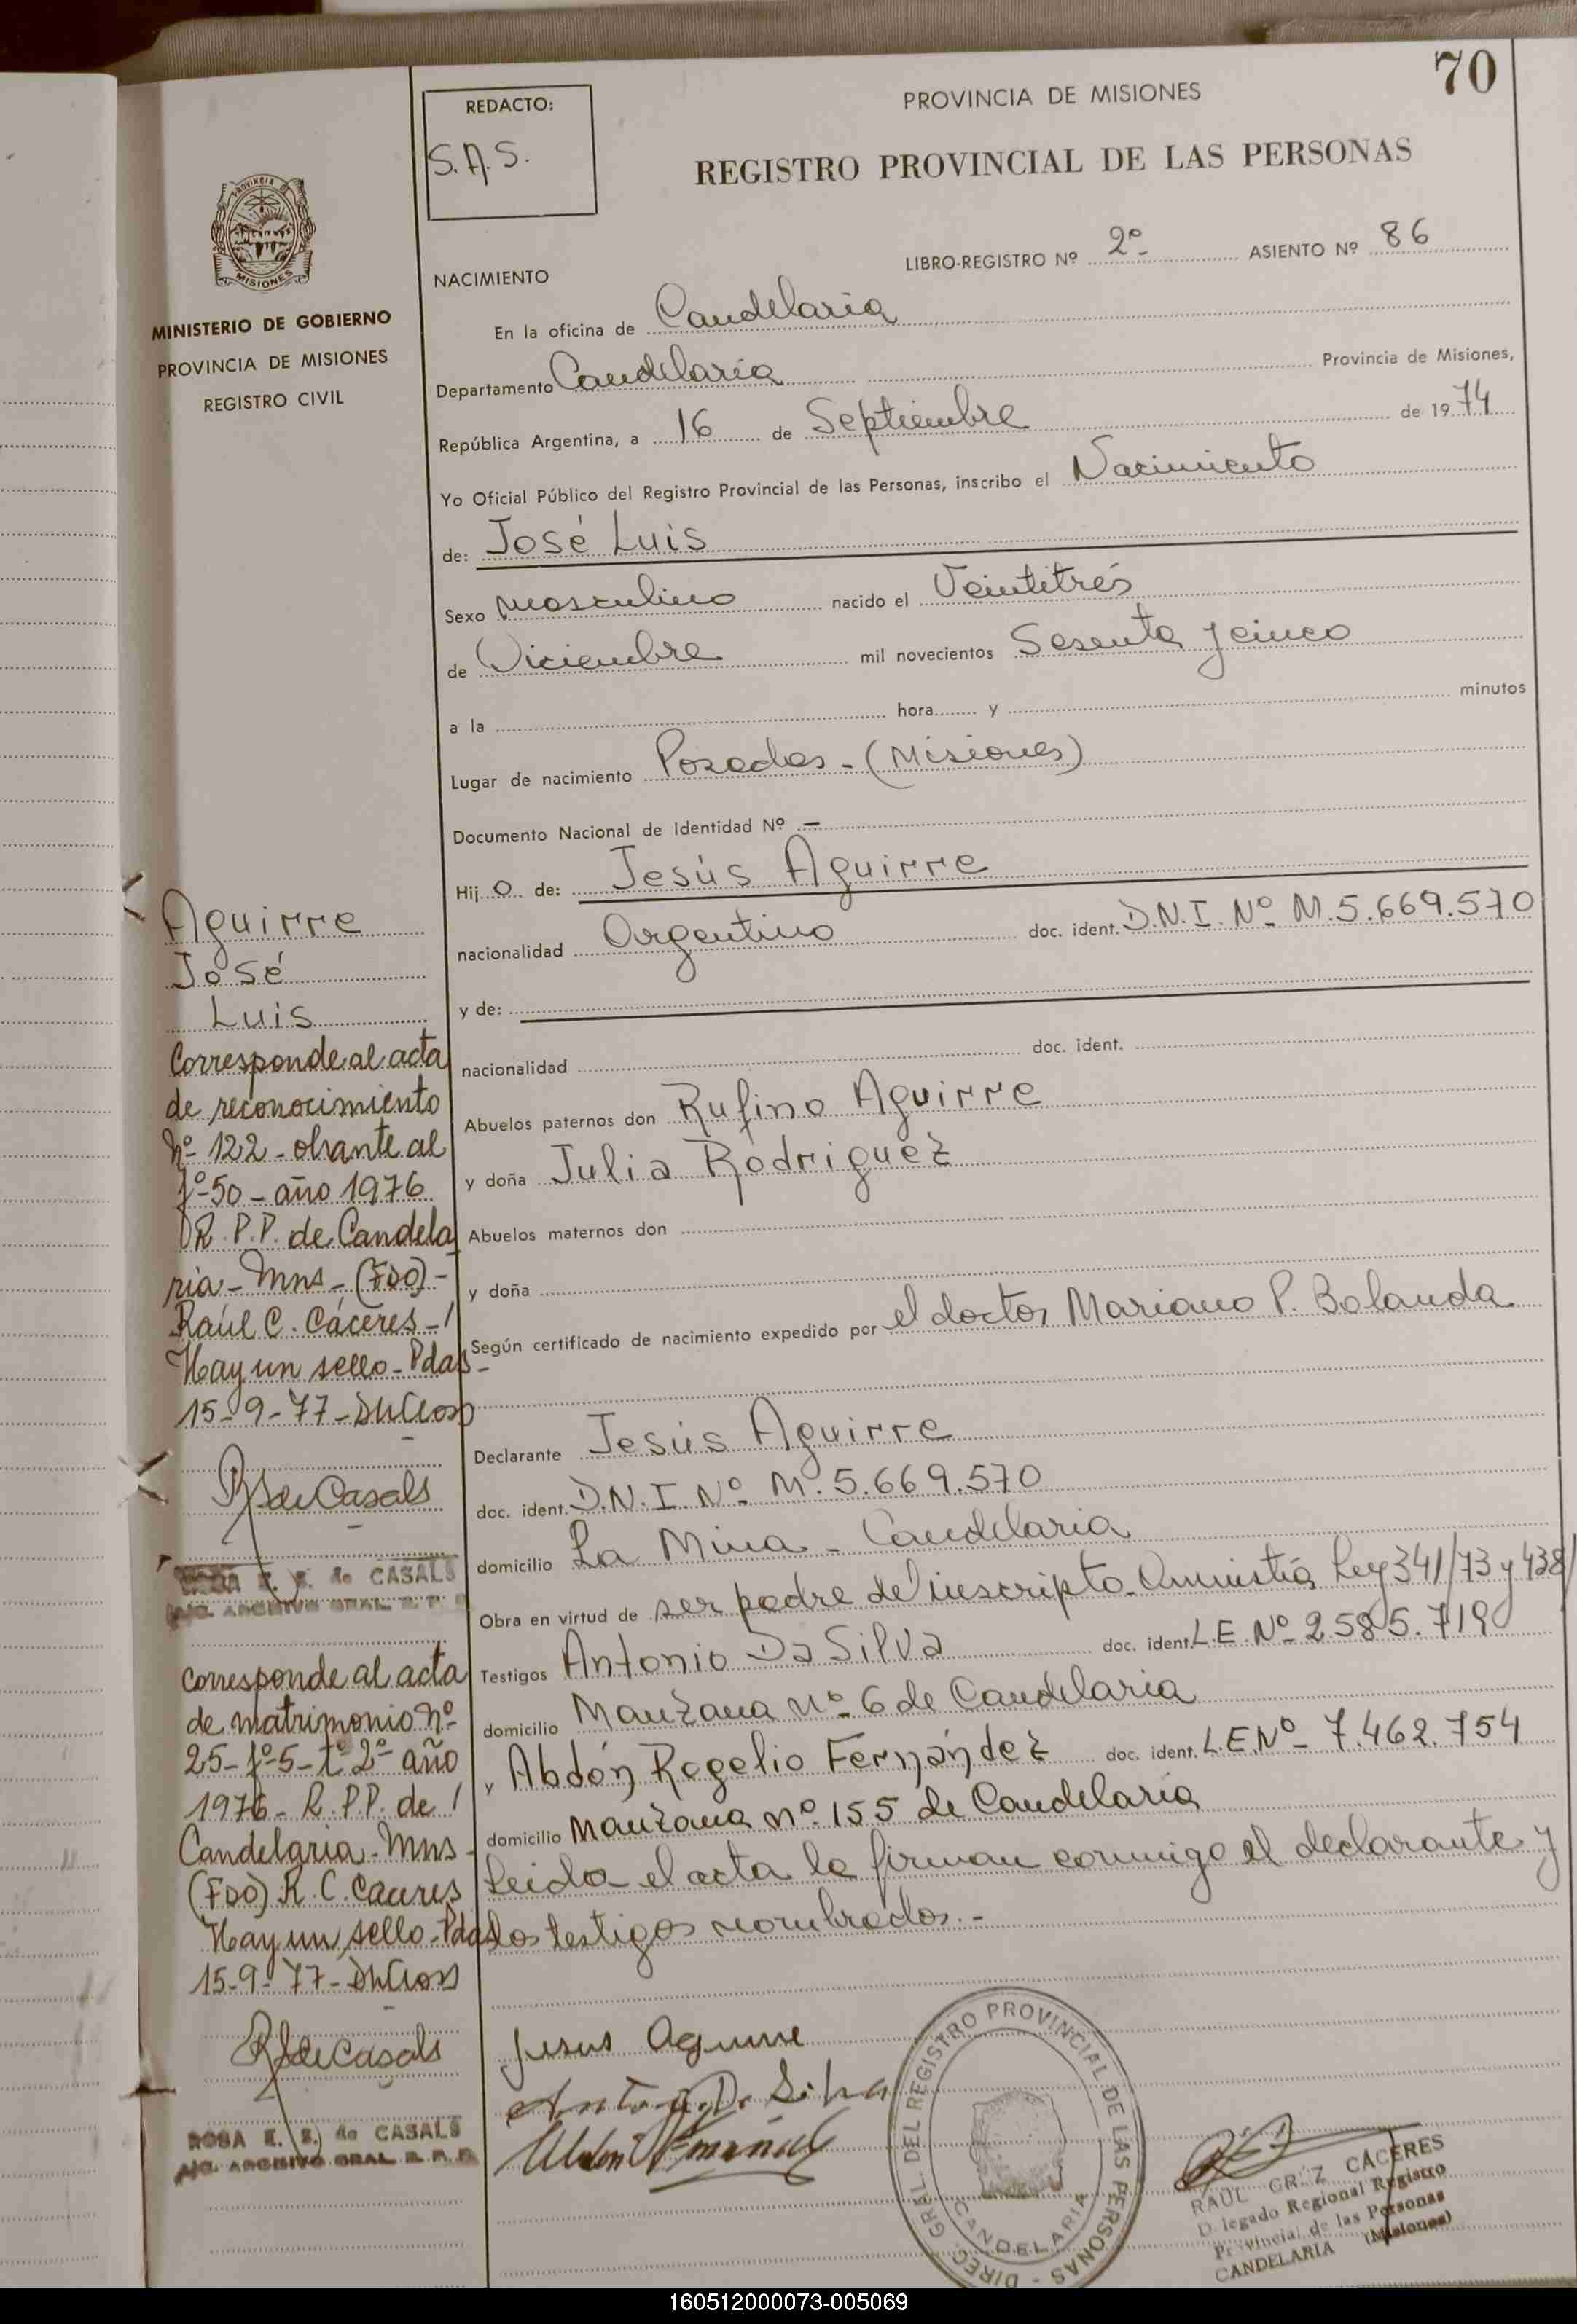 70
REDACTO:
S.A.S.
PROVINCIA DE MISIONES
REGISTRO PROVINCIAL DE LAS PERSONAS
LIBRO-REGISTRO Nº 2º ASIENTO Nº 86
NACIMIENTO
En la oficina de Candelaria
Departamento Candelaria Provincia de Misiones,
República Argentina, a 16 de Septiembre de 1974
Yo Oficial Público del Registro Provincial de las Personas, inscribo el Nacimiento
de: José Luis
Sexo masculino nacido el Veintitrés
de Diciembre mil novecientos Sesenta y cinco
a la hora y minutos
Lugar de nacimiento Posadas - (Misiones)
Documento Nacional de Identidad Nº -
Hijo de: Jesús Aguirre
nacionalidad Argentino doc. ident. D.N.I. Nº M.5.669.570
y de:
nacionalidad doc. ident.
Abuelos paternos don Rufino Aguirre
y doña Julia Rodriguez
Abuelos maternos don
y doña
Según certificado de nacimiento expedido por el doctor Mariano P. Bolanda
Declarante Jesús Aguirre
doc. ident. D.N.I. Nº M.5.669.570
domicilio La Mina - Candelaria
Obra en virtud de ser padre del inscripto. Amnistía Ley 341/73 y 438/
Testigos Antonio Da Silva doc. ident. L.E. Nº 2.585.719
domicilio Manzana Nº 6 de Candelaria
y Abdón Rogelio Fernández doc. ident. L.E.Nº - 7.462.754
domicilio Manzana nº 155 de Candelaria
Leida el acta la firman conmigo el declarante y
los testigos nombrados.-
Jesus Aguirre
DIREC. GRAL. DEL REGISTRO PROVINCIAL DE LAS PERSONAS -
CANDELARIA
RAUL CRUZ CACERES
Delegado Regional Registro
Provincial de las Personas
CANDELARIA (Misiones)
PROVINCIA DE
MISIONES
MINISTERIO DE GOBIERNO
PROVINCIA DE MISIONES
REGISTRO CIVIL
Aguirre
José
Luis
Corresponde al acta
de reconocimiento
Nº 122 - obrante al
fº-50 - año 1976
R.P.P. de Candela
ria - Mns - (FDO) -
Raúl C. Cáceres -/
Hay un sello - Pdas -
15-9-77-
R S de Casals
ROSA E. S. de CASALS
A/C. ARCHIVO GRAL. R. P. P.
Corresponde al acta
de matrimonio nº
25-fº-5-tº 2º año
1976 - R.P.P. de /
Candelaria - Mns -
(FDO) R. C. Cáceres
Hay un sello - Pdas
15-9-77-
R S de Casals
ROSA E. S. de CASALS
A/C. ARCHIVO GRAL. R. P. P.
160512000073-005069